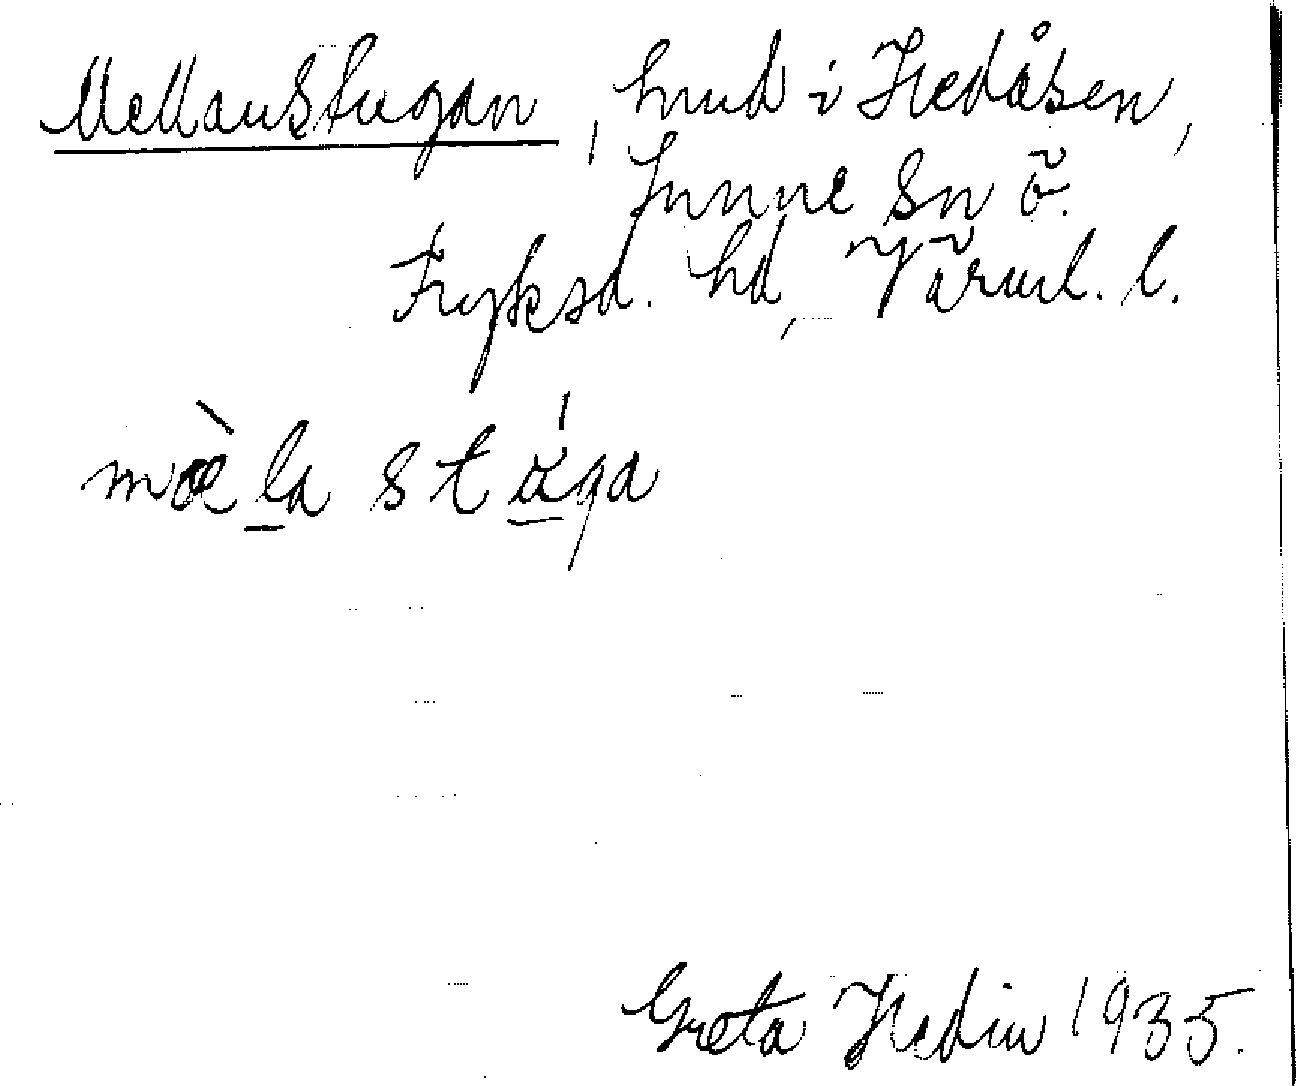 Mellanstugan, hmd i Hedåsen,
Gunne sn ö.
Fryksd. hd, Värml. l.
mæ̀la stága
Greta Hedin 1935.